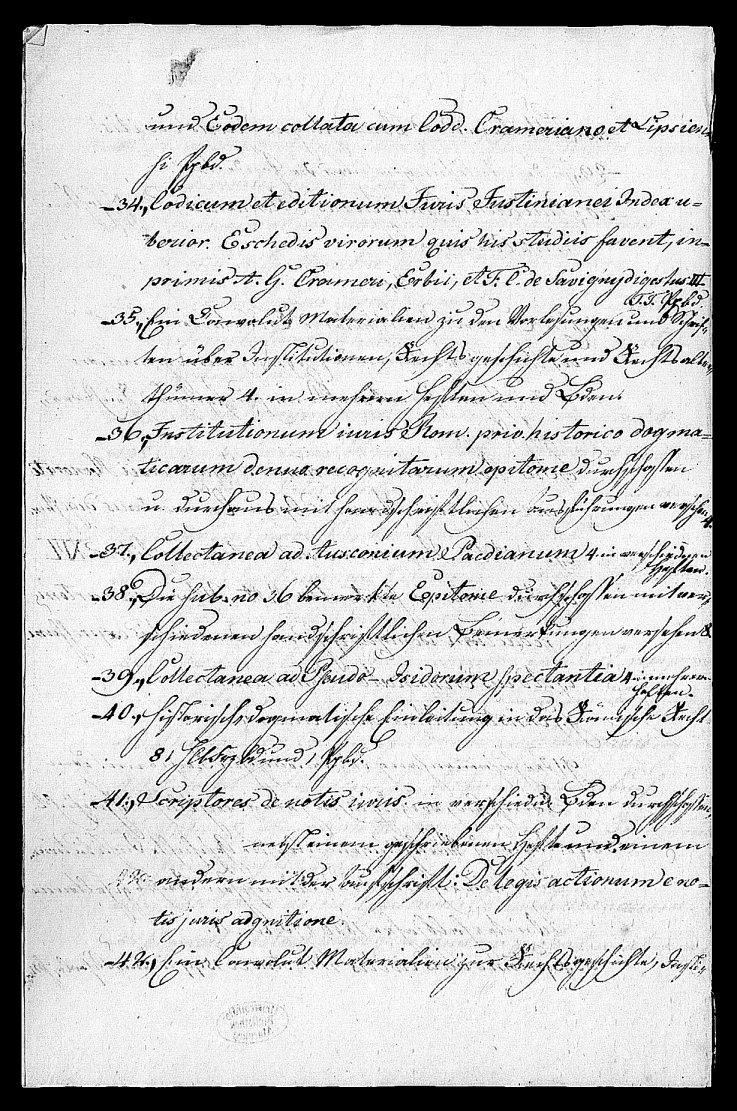 und Eodem collata cum Codd. Crameriano et Lipsien
si Ppbd.
-34., Codicum et editionum Juris Justinianei Index u-
berior. E schedis virorum quis his studiis favent, in-
primis A. G. Crameri, Erbii, et F. C. de Savigny digestus III
T. T. Ppbd.
-35., Ein Convolut Materialien zu den Vorlesungen und Schrif-
ten über Institutionen, Rechtsgeschichte und Rechtsalter-
thümer 4. in mehrern Heften und Bden.
-36., Institutionum iuris Rom. priv. historico dogma-
ticarum denuo recognitarum epitome durchschossen
u. durchaus mit handschriftlichen Ausführungen versehen
4.
-37., Collectanea ad Ausconium Paedianum 4. in verschiedenen
Heften.
-38., Die sub. no 36 bemerkte Epitome durchschossen mit ver-
schiedenen handschriftlichen Bemerkungen versehen 8.
-39., Collectanea ad Pseudo-Isidorum spectantia 4 in mehrern
Heften.
-40., Historisch dogmatische Einleitung in das Römische Recht
8. 1 Hlbfrzbd und 1 Ppbd.
-41., Scriptores de notis iuris. in verschied. Bden durchschossen,
nebst einem geschriebenen Hefte und einem
andern mit der Aufschrift: De legis actionum e no-
tis juris adgnitione.
-42., Ein Convolut Materialien zur Rechtsgeschichte, Insti-